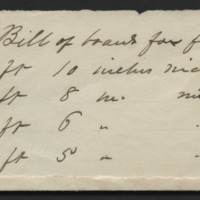 Bill of boards for f
ft 10 inches
ft 8 in.
ft 6 "
ft 5 "